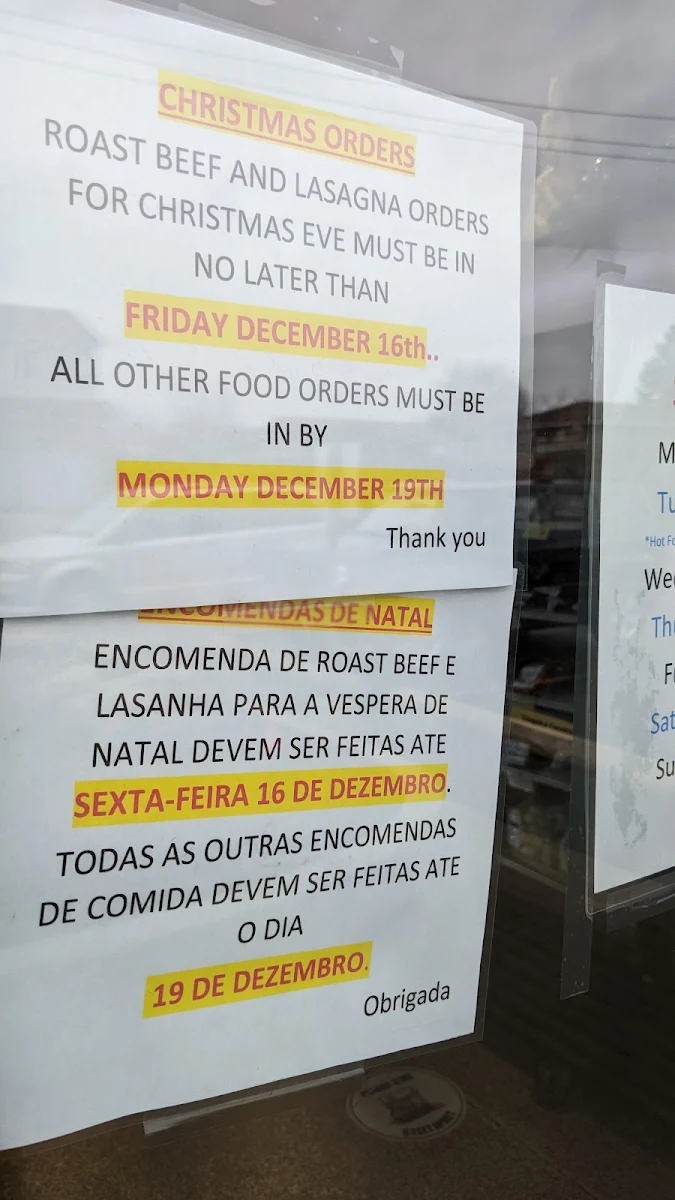 CHRISTMAS ORDERS
ROAST BEEF AND LASAGNA ORDERS
FOR CHRISTMAS EVE MUST BE IN
NO LATER THAN
FRIDAY DECEMBER 16th..
ALL OTHER FOOD ORDERS MUST BE
IN BY
MONDAY DECEMBER 19TH
Thank you
ENCOMENDAS DE NATAL
ENCOMENDA DE ROAST BEEF E
LASANHA PARA A VESPERA DE
NATAL DEVEM SER FEITAS ATE
SEXTA-FEIRA 16 DE DEZEMBRO.
TODAS AS OUTRAS ENCOMENDAS
DE COMIDA DEVEM SER FEITAS ATE
O DIA
19 DE DEZEMBRO.
Obrigada
M
Tu
*Hot Fo
Wed
Thu
Fr
Sat
Su